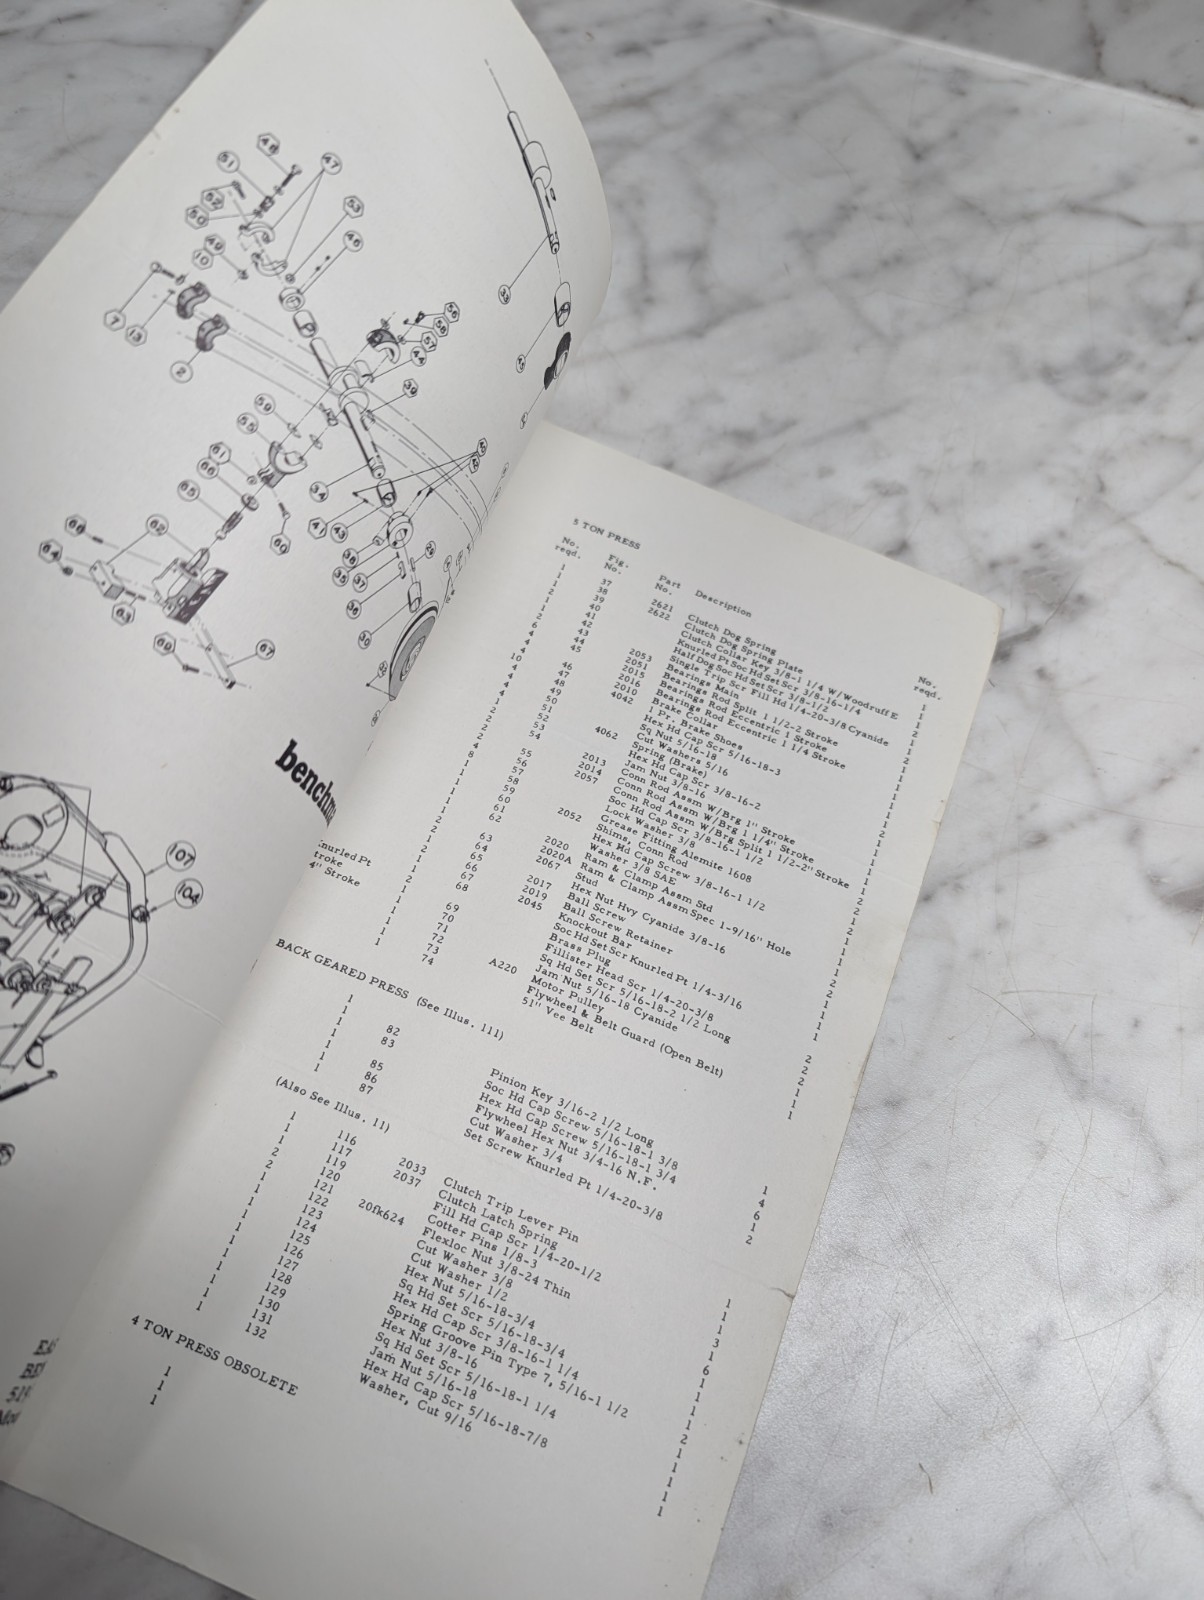 48
51
47
52
50
53
46
49
10
7
13
2
56
58
57
44
39
59
55
61
66
65
34
41
43
38
35
37
36
30
60
62
68
64
63
67
69
33
benchm
107
104
Knurled Pt
troke
4" Stroke
5 TON PRESS
No. reqd.
Fig. No.
Part No.
Description
No. reqd.
37
38
39
40
41
42
43
44
45
46
47
48
49
50
51
52
53
54
55
56
57
58
59
60
61
62
63
64
65
66
67
68
69
70
71
72
73
74
2621
2622
2053
2051
2015
2016
2010
4042
4062
2013
2014
2057
2052
2020
2020A
2067
2017
2019
2045
A220
Clutch Dog Spring
Clutch Dog Spring Plate
Clutch Collar Key 3/8-1 1/4 W/Woodruff E
Knurled Pt Soc Hd Set Scr 3/8-16-1/4
Half Dog Soc Hd Set Scr 3/8-1/2
Single Trip Scr Fill Hd 1/4-20-3/8 Cyanide
Bearings Main
Bearings Rod Split 1 1/2-2 Stroke
Bearings Rod Eccentric 1 Stroke
Bearings Rod Eccentric 1 1/4 Stroke
Brake Collar
1 Pr. Brake Shoes
Hex Hd Cap Scr 5/16-18-3
Sq Nut 5/16-18
Cut Washers 5/16
Spring (Brake)
Hex Hd Cap Scr 3/8-16-2
Jam Nut 3/8-16
Conn Rod Assm W/Brg 1" Stroke
Conn Rod Assm W/Brg 1 1/4" Stroke
Conn Rod Assm W/Brg Split 1 1/2-2" Stroke
Soc Hd Cap Scr 3/8-16-1 1/2
Lock Washer 3/8
Grease Fitting Alemite 1608
Shims, Conn Rod
Hex Hd Cap Screw 3/8-16-1 1/2
Washer 3/8 SAE
Ram & Clamp Assm Std
Ram & Clamp Assm Spec 1-9/16" Hole
Stud
Hex Nut Hvy Cyanide 3/8-16
Ball Screw
Ball Screw Retainer
Knockout Bar
Soc Hd Set Scr Knurled Pt 1/4-3/16
Brass Plug
Fillister Head Scr 1/4-20-3/8
Sq Hd Set Scr 5/16-18-2 1/2 Long
Jam Nut 5/16-18 Cyanide
Motor Pulley
Flywheel & Belt Guard (Open Belt)
51" Vee Belt
BACK GEARED PRESS (See Illus. 111)
82
83
85
86
87
Pinion Key 3/16-2 1/2 Long
Soc Hd Cap Screw 5/16-18-1 3/8
Hex Hd Cap Screw 5/16-18-1 3/4
Flywheel Hex Nut 3/4-16 N.F.
Cut Washer 3/4
Set Screw Knurled Pt 1/4-20-3/8
1
4
6
1
2
(Also See Illus. 11)
116
117
119
120
121
122
123
124
125
126
127
128
129
130
131
132
2033
2037
20fk624
Clutch Trip Lever Pin
Clutch Latch Spring
Fill Hd Cap Scr 1/4-20-1/2
Cotter Pins 1/8-3
Flexloc Nut 3/8-24 Thin
Cut Washer 3/8
Cut Washer 1/2
Hex Nut 5/16-18-3/4
Sq Hd Set Scr 5/16-18-3/4
Hex Hd Cap Scr 3/8-16-1 1/4
Spring Groove Pin Type 7, 5/16-1 1/2
Hex Nut 3/8-16
Sq Hd Set Scr 5/16-18-1 1/4
Jam Nut 5/16-18
Hex Hd Cap Scr 5/16-18-7/8
Washer, Cut 9/16
4 TON PRESS OBSOLETE
1
1
1